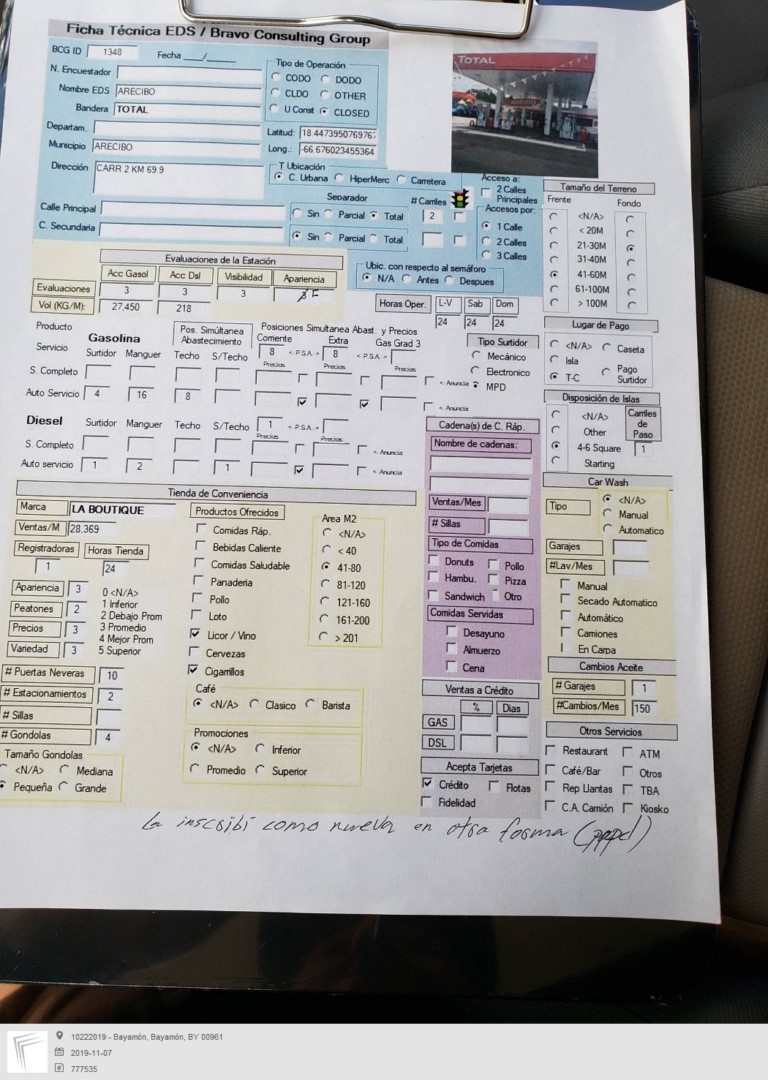 Ficha Técnica EDS / Bravo Consulting Group
BCG ID 1348 Fecha ___/___
N. Encuestador
Nombre EDS ARECIBO
Bandera TOTAL
Departam.
Municipio ARECIBO
Dirección CARR 2 KM 69.9
Tipo de Operación
CODO DODO
CLDO OTHER
U Const CLOSED
Latitud: 18.4473950769767
Long.: -66.676023455364
TOTAL
T Ubicación
C. Urbana HiperMerc Carretera
Calle Principal
C. Secundaria
Separador
Sin Parcial Total
Sin Parcial Total
# Carriles
2
Acceso a:
2 Calles
Principales
Accesos por:
1 Calle
2 Calles
3 Calles
Tamaño del Terreno
Frente Fondo
<N/A>
< 20M
21-30M
31-40M
41-60M
61-100M
> 100M
Evaluaciones de la Estación
Acc Gasol Acc Dsl Visibilidad Apariencia
Evaluaciones 3 3 3
Vol (KG/M): 27,450 218
Ubic. con respecto al semáforo
N/A Antes Despues
Horas Oper. L-V Sab Dom
24 24 24
Lugar de Pago
<N/A> Caseta
Isla
T-C Pago
Surtidor
Producto
Servicio
Gasolina
Surtidor Manguer
Pos. Simúltanea
Abastecimiento
Techo S/Techo
Posiciones Simultanea Abast. y Precios
Corriente Extra Gas Grad 3
8 < P.S.A. > 8 < P.S.A. >
Precios Precios Precios
S. Completo
< Anuncia
Auto Servicio 4 16 8
< Anuncia
Tipo Surtidor
Mecánico
Electronico
MPD
Disposición de Islas
<N/A>
Other
4-6 Square
Starting
Carriles
de
Paso
1
Diesel Surtidor Manguer Techo S/Techo 1 < P.S.A. >
Precios Precios
S. Completo
< Anuncia
Auto servicio 1 2 1
< Anuncia
Cadena(s) de C. Ráp.
Nombre de cadenas:
Ventas/Mes
# Sillas
Tipo de Comidas
Donuts Pollo
Hambu. Pizza
Sandwich Otro
Comidas Servidas
Desayuno
Almuerzo
Cena
Car Wash
Tipo
<N/A>
Manual
Automatico
Garajes
#Lav/Mes
Manual
Secado Automatico
Automático
Camiones
En Carpa
Tienda de Conveniencia
Marca LA BOUTIQUE
Ventas/M 28,369
Registradoras Horas Tienda
1 24
Apariencia 3
Peatones 2
Precios 3
Variedad 3
0 <N/A>
1 Inferior
2 Debajo Prom
3 Promedio
4 Mejor Prom
5 Superior
# Puertas Neveras 10
# Estacionamientos 2
# Sillas
# Gondolas 4
Tamaño Gondolas
<N/A> Mediana
Pequeña Grande
Productos Ofrecidos
Comidas Ráp.
Bebidas Caliente
Comidas Saludable
Panaderia
Pollo
Loto
Licor / Vino
Cervezas
Cigarrillos
Area M2
<N/A>
< 40
41-80
81-120
121-160
161-200
> 201
Café
<N/A> Clasico Barista
Promociones
<N/A> Inferior
Promedio Superior
Ventas a Crédito
% Dias
GAS
DSL
Acepta Tarjetas
Crédito Flotas
Fidelidad
Cambios Aceite
# Garajes 1
#Cambios/Mes 150
Otros Servicios
Restaurant ATM
Café/Bar Otros
Rep Llantas TBA
C.A. Camión Kiosko
La inscribí como nueva en otra forma
10222019 - Bayamón, Bayamón, BY 00961
2019-11-07
777535